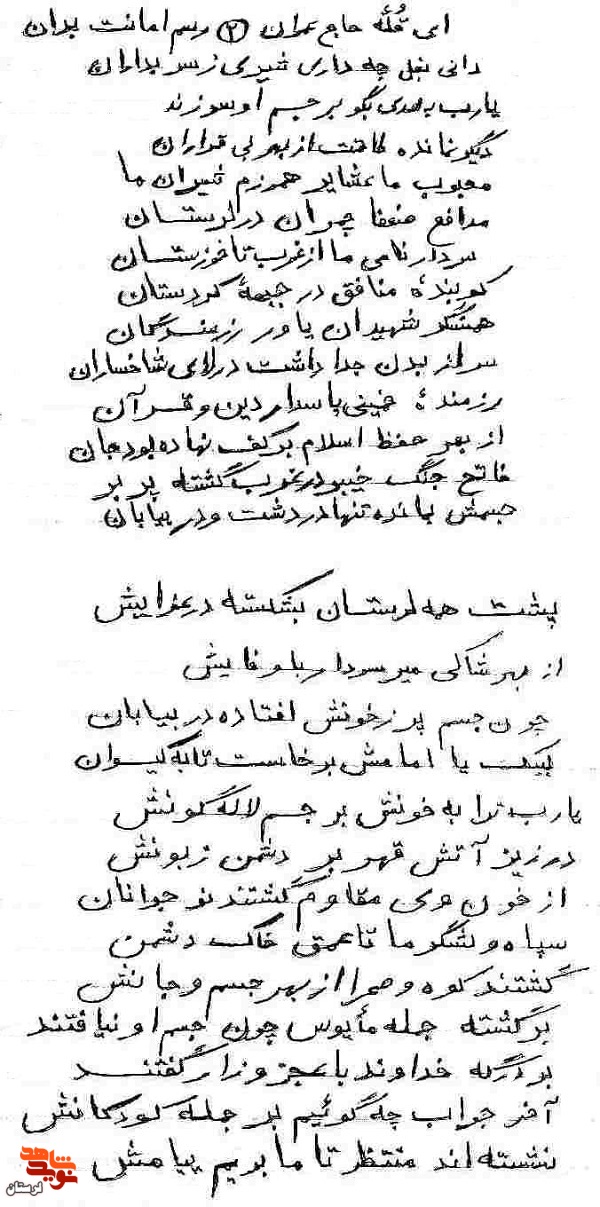 ای قُلّه حاج عمران ② رسم امانت بدان
دانی بغل چه داری شیری ز سربداران
یارب به مهدی بگو بر جسم او سوزند
دیگر نمانده طاقت از بهر بی قراران
محبوب ما عشایر همرزم شیران ما
مدافع ضعفا چمران در لرستان
سردار نامی ما از غرب تا خوزستان
کوبندهٔ منافق در جبههٔ کردستان
همسنگر شهیدان یاور رزمندگان
سر از بدن جدا داشت در لای شاخساران
رزمندهٔ خمینی پاسدار دین و قرآن
از بهر حفظ اسلام بر کف نهاده بود جان
فاتح جنگ خیبر در غرب گشته پرپر
جسمش مانده تنها در دشت و در بیابان
پشت همه لرستان بشکسته در عزایش
از بهر شاکی میر سردار باوفایش
چون جسم پر ز خونش افتاده در بیابان
لبیک یا امامش برخاست تا به کیوان
یارب ترا به خونش بر جسم لاله گونش
در زیر آتش قهر بر دشمن زبونش
از خون وی مقاوم گشتند نوجوانان
سپاه و لشگر ما تا عمق خاک دشمن
گشتند کوه و صحرا از بهر جسم و جانش
برگشته جمله مأیوس چون جسم او نیافتند
بر درگه خداوند با عجز و زار گفتند
آخر جواب چه گوئیم بر جمله کودکانش
نشسته اند منتظر تا ما بریم پیامش
نوید شاهد
لرستان